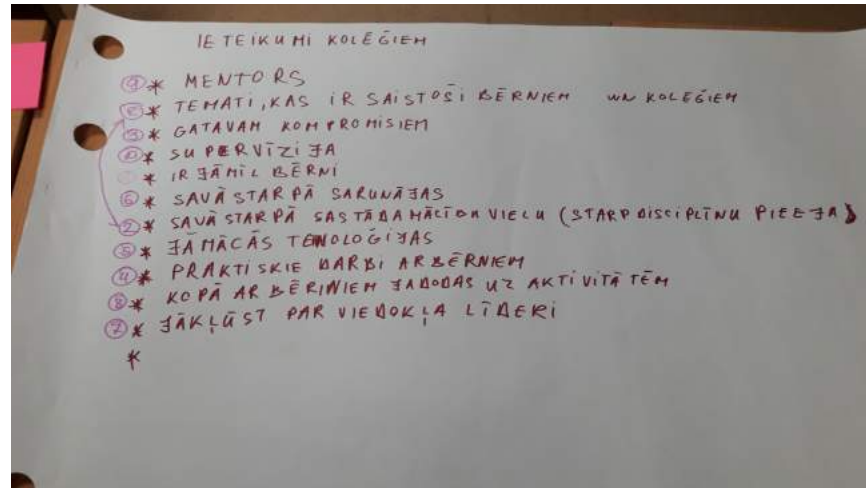 IETEIKUMI KOLĒĢIEM
9 * MENTORS
* TEMATI, KAS IR SAISTOŠI BĒRNIEM UN KOLEĢIEM
3 * GATAVAM KOMPROMISIEM
* SUPERVĪZIJA
* IR JĀMĪL BĒRNI
6 * SAVĀ STARPĀ SARUNĀJAS
2 * SAVĀ STARPĀ SASTĀDA MĀCĪBN VIELU (STARPDISCIPLĪNU PIEEJA)
5 * JĀMĀCĀS
4 * PRAKTISKIE DARBI AR BĒRNIEM
8 * KOPĀ AR BĒRINIEM JADODAS UZ AKTIVITĀTĒM
7 * JĀKĻŪST PAR VIEDOKĻA LĪDERI
*